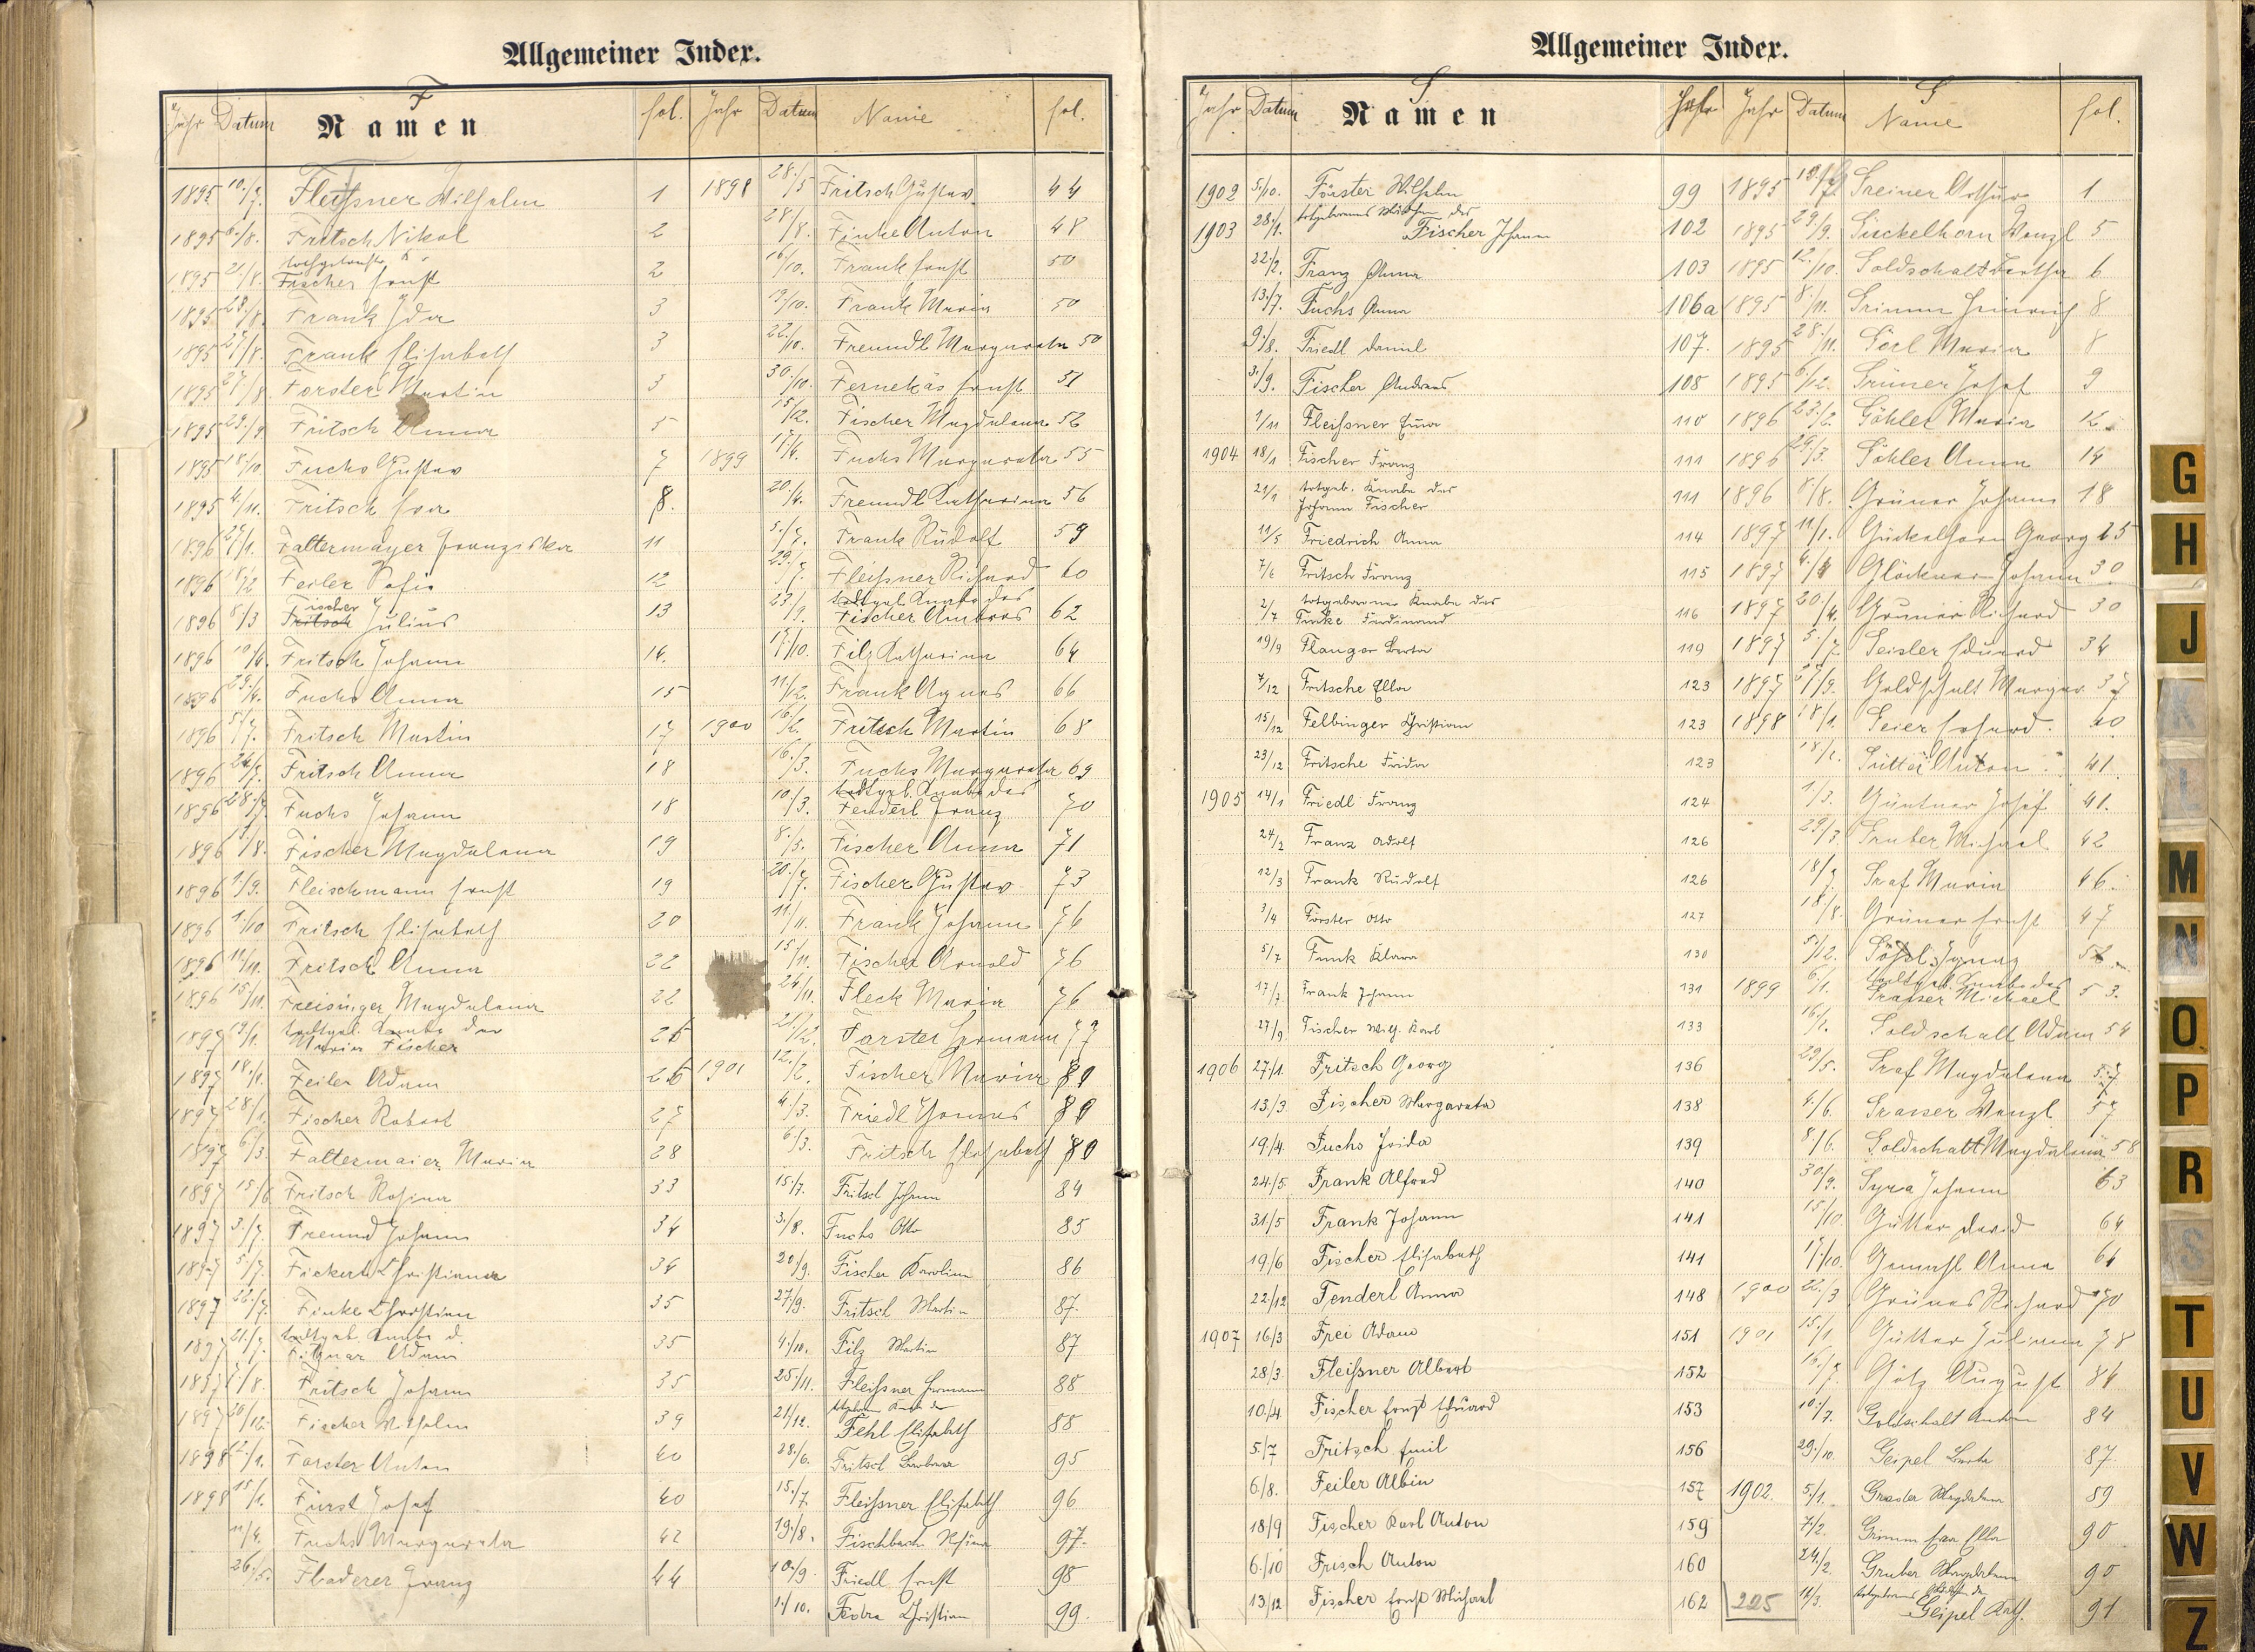 Allgemeiner Index.
F
Jahr Datum Namen fol. Jahr Datum Name fol.
1895 10./7. Fleißner Wilhelm 1
1895 6./8. Fritsch Nikol 2
1895 21./8. Fischer Ernst 2
1895 28./8. Frank Ida 3
1895 27./8. Frank Elisabeth 3
1895 27./8. Forster Martin 3
1895 29./9. Fritsch Anna 5
1895 18./10. Fuchs Gustav 7
1895 4./11. Fritsch Eva 8.
1896 27./1. Faltermayer Franziska 11
1896 18./2 Feiler Sofie 12
1896 8./3 Fischer Julius 13
1896 10/4. Fritsch Johann 14.
1896 29./4. Fuchs Anna 15
1896 5./7. Fritsch Martin 17
1896 24/7. Fritsch Anna 18
1896 28./7. Fuchs Johann 18
1896 13./8. Fischer Magdalena 19
1896 1./9. Fleischmann Ernst 19
1896 1./10 Fritsch Elisabeth 20
1896 11./11. Fritsch Anna 22
1896 15./11. Freisinger Magdalena 22
1897 13./1. todtgeb. Knabe der
Maria Fischer 26
1897 18./1. Feiler Adam 26
1897 28./1. Fischer Robert 27
1897 6./3. Faltermaier Maria 28
1897 15./6 Fritsch Rosina 33
1897 3./7. Freund Johann 34
1897 5./7. Fickert Christiana 34
1897 22./7. Finke Christian 35
1897 21./7. todtgeb. Knabe d.
Adam 35
1897 1./8. Fritsch Johann 35
1897 20/12. Fischer Wilhelm 39
1898 12./1. Forster Anton 40
1898 15/1. Fürst Josef 40
11/4. Fuchs Margareta 42
26/5. Fladerer Franz 44
1898 28./5 Fritsch Gustav 44
28./8. Finke Anton 48
16/10. Frank Ernst 50
19/10. Frank Maria 50
22./10. Freundl Margareta 50
30./10. Fernekäs Ernst 51
15/12. Fischer Magdalena 52
1899 17/4. Fuchs Margareta 55
20./4. Freundl Katharina 56
5./7. Frank Rudolf 59
29./7. Fleißner Richard 60
23/9. todtgeb. Knabe des
Fischer Ambros 62
17./10. Filz Katharina 64
11./12. Frank Agnes 66
1900 16./2. Fritsch Martin 68
16./3. Fuchs Margareta 69
10./3. todtgeb. Knabe des
Fenderl Franz 70
8./5. Fischer Anna 71
20./7. Fischer Gustav 73
11/11. Frank Johann 76
15./11. Fischer Arnold 76
24/11. Fleck Maria 76
2./12. Forster Hermann 77
1901 12./2. Fischer Maria 80
4./3. Friedl 80
6./3. Fritsch Elisabeth 80
15./7. Fritsch Johann 84
3./8. Fuchs Otto 85
20/9. Fischer Karolina 86
27/9. Fritsch Martin 87.
4./10. Filz Martin 87
25./11. Fleißner Hermann 88
21/12. totgeborner Knabe der
Fehl Elisabeth 88
28./6. Fritsch Barbara 95
15./7. Fleißner Elisabeth 96
19./8. Fischbach 97.
10./9. Friedl Ernst 98
1./10. Christian 99.
Allgemeiner Index.
Jahr Datum Namen Jahr Datum Name fol.
1902 5./10. Förster Wilhelm 99
1903 28./1. totgeborenes Mädchen des
Fischer Johann 102
22/2. Franz Anna 103
13./7. Fuchs Anna 106a
9./8. Friedl Daniel 107.
3./9. Fischer Andreas 108
1/11 Fleißner Erna 110
1904 18/1 Fischer Franz 111
21/1 totgeb. Knabe des
Johann Fischer 111
11/5 Friedrich Anna 114
7/6 Fritsch Franz 115
2/7 totgeborner Knabe des
Funke Ferdinand 116
19/9 Flauger Berta 119
7/12 Fritsche Ella 123
15/12 Felbinger Christian 123
23/12 Fritsche Frida 123
1905 14/1 Friedl Franz 124
24/2 Franz Adolf 126
12/3 Frank Rudolf 126
3/4 Förster Otto 127
5/7 Funk Klara 130
17/7 Frank Johann 131
27/9 Fischer Wilh. Karl 133
1906 27/1. Fritsch Georg 136
13./3. Fischer Margareta 138
19./4. Fuchs Frida 139
24./5. Frank Alfred 140
31./5 Frank Johann 141
19./6 Fischer Elisabeth 141
22./12 Fenderl Anna 148
1907 16/3 Frei Adam 151
28/3. Fleißner Albert 152
10./4. Fischer Ernst Eduard 153
5./7 Fritsch Emil 156
6./8. Feiler Albin 157
18/9 Fischer Karl Anton 159
6./10 Frisch Anton 160
13./12 Fischer Ernst Michael 162
1895 19./7 Greiner Arthur 1
1895 29/9. Gückelhorn Wenzl 5
1895 12./10. Goldschalt Bertha 6
1895 8./11. Grimm Heinrich 8
1895 28./11. Görl Maria 8
1895 6./12. Grüner Josef 9
1896 23./2. Göhler Maria 12.
1896 29/3. Göhler Anna 14
1896 8/8. Grüner Johann 18
1897 11/1. Gückelhorn Georg 25
1897 4./4 Glöckner Johann 30
1897 20./4. Grüner Richard 30
1897 5./7. Geisler Eduard 34
1897 27/9. Goldschalt Margar. 37
1898 18/1. Geier Erhard. 40
18/2. Gütter Anton 41.
1/3. Güntner Josef 41.
29/3. Gruber Michael 42
18/7 Graf Maria 46.
18./8. Grüner Ernst 47
5./12. Gößl Ignaz 52
1899 6/1. todtgeb. Knabe des
Grasser Michael 53.
16./1. Goldschalt Adam 54
29/5. Graf Magdalena 57
4./6. Grasser Wenzl 57
8./6. Goldschalt Magdalena 58
30/9. Gyra Johann 63
15/10. Gütter David 64
17./10. Gemahl Anna 64
1900 22./3 Grüner Richard 70
1901 15./1. Gütter Juliana 78
16./7. Götz August 84
10./7. Goldschalt Anton 84
29./10. Geipel Berta 87.
1902. 5/1. Magdalena 89
7./2. Grimm Eva Ella 90
24./2. Gruber Magdalena 90
11/3. totgeborenes Mädchen der
Geipel Kath. 91
225
G
H
J
K
L
M
N
O
P
R
S
T
U
V
W
Z